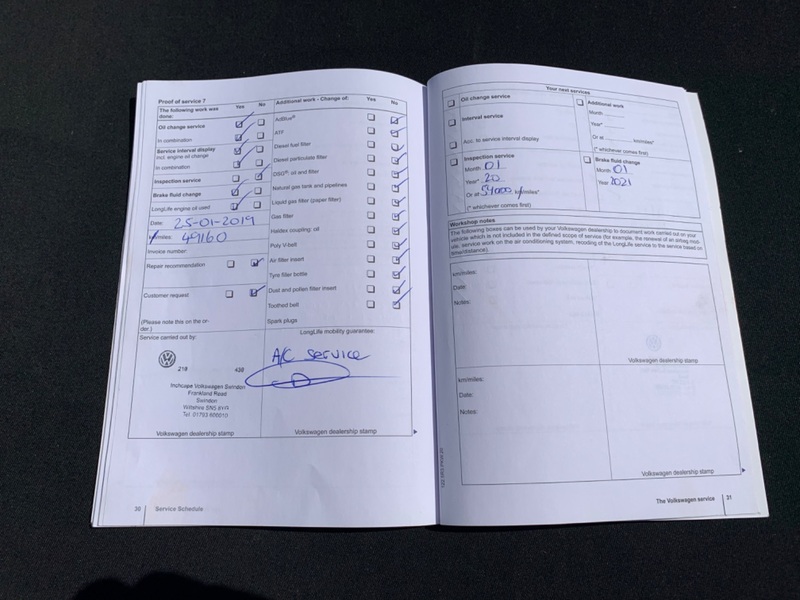 Proof of service 7
The following work was done:
Yes
No
Oil change service
In combination
Service interval display
incl. engine oil change
In combination
Inspection service
Brake fluid change
LongLife engine oil used
Date: 25-01-2019
km/miles: 49160
Invoice number
Repair recommendation
Customer request
(Please note this on the order.)
Service carried out by:
218 438
Inchcape Volkswagen Swindon
Frankland Road
Swindon
Wiltshire SN5 8YR
Tel: 01793
Volkswagen dealership stamp
Additional work - Change of:
Yes
No
AdBlue®
ATF
Diesel fuel filter
Diesel particulate filter
DSG®: oil and filter
Natural gas tank and pipelines
Liquid gas filter (paper filter)
Gas filter
Haldex coupling: oil
Poly V-belt
Air filter insert
Tyre filler bottle
Dust and pollen filter insert
Toothed belt
Spark plugs
LongLife mobility guarantee:
A/C service
Volkswagen dealership stamp
30 Service Schedule
Your next services
Oil change service
Interval service
Acc. to service interval display
Inspection service
Month 01
Year* 20
Or at 59000 km/miles*
(* whichever comes first)
Additional work
Month
Year*
Or at km/miles*
(* whichever comes first)
Brake fluid change
Month 01
Year 2021
Workshop notes
The following boxes can be used by your Volkswagen dealership to document work carried out on your
vehicle which is not included in the defined scope of service (for example, the renewal of an airbag mod-
ule, service work on the air conditioning system, recording of the LongLife service to the service based on
time/distance).
km/miles:
Date:
Notes:
Volkswagen dealership stamp
km/miles:
Date:
Notes:
Volkswagen dealership stamp
The Volkswagen service 31